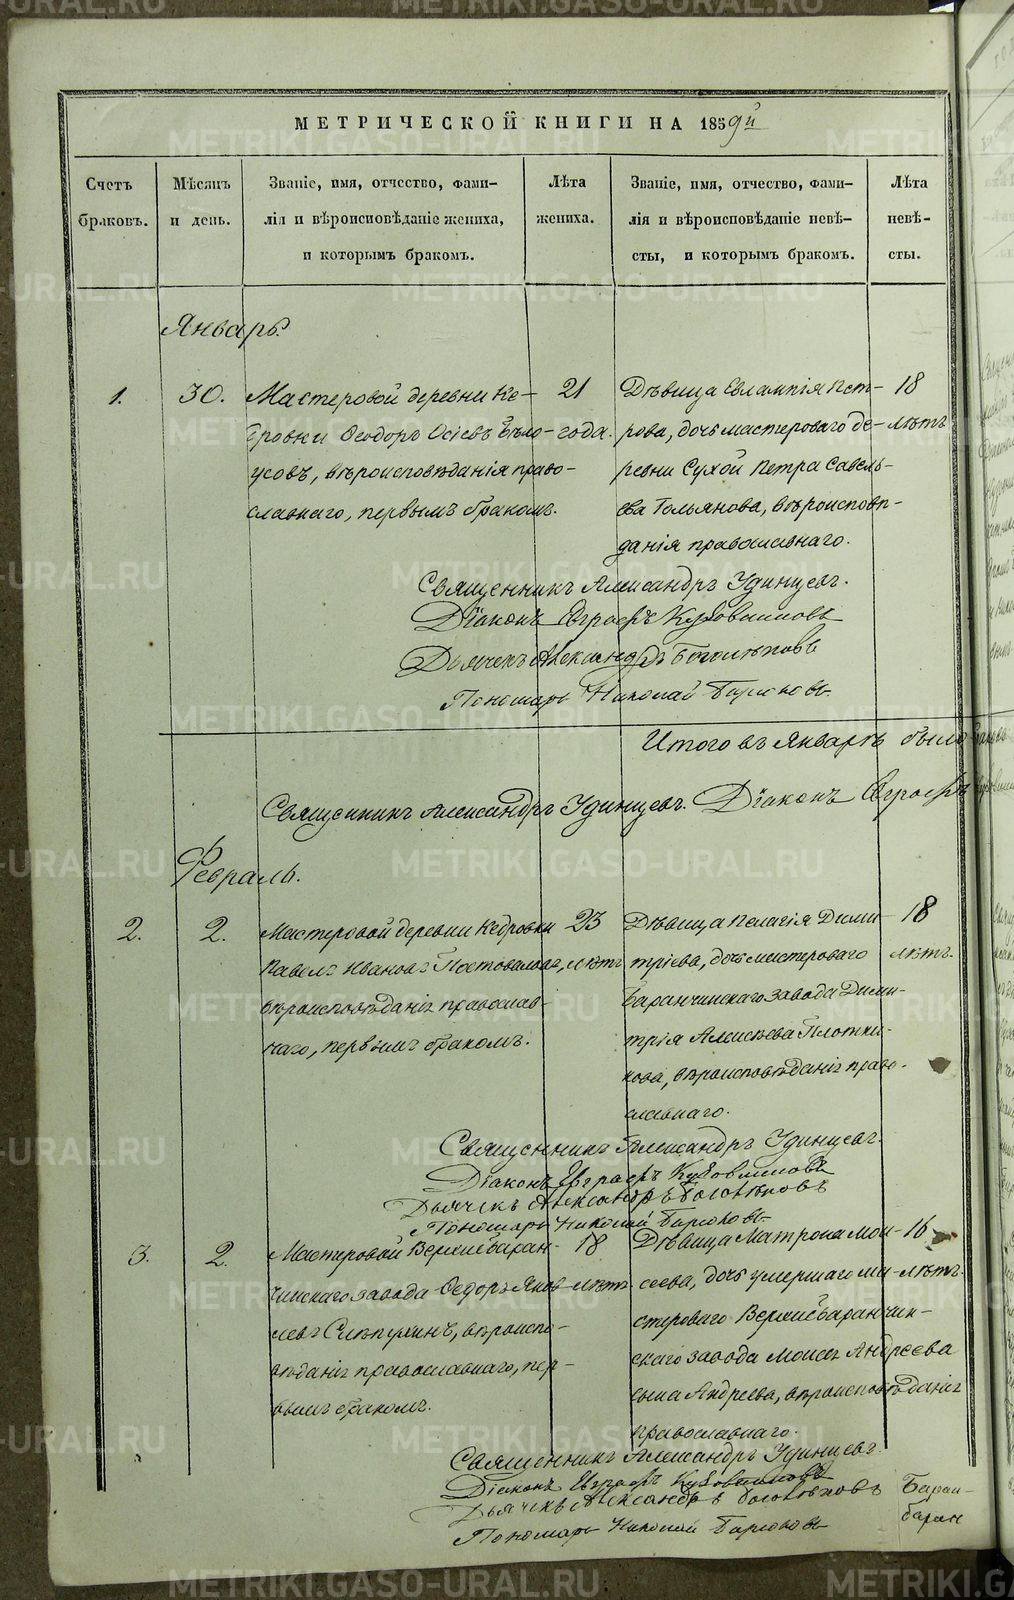 МЕТРИЧЕСКОЙ КНИГИ НА 1859й
Счетъ
браковъ.
Мѣсяцъ
и день.
Званіе, имя, отчество, фами-
лія и вѣроисповѣданіе жениха,
и которымъ бракомъ.
Лѣта
жениха.
Званіе, имя, отчество, фами-
лія и вѣроисповѣданіе невѣ-
сты, и которымъ бракомъ.
Лѣта
невѣ-
сты.
Январь.
1.
30.
Мастеровой деревни Ке-
дровки Ѳеодоръ Осіевъ Бѣло-
усовъ, вѣроисповѣданія право-
славнаго, первымъ бракомъ.
21
года.
Дѣвица Евлампія Пет-
рова, дочь мастероваго де-
ревни Сухой Петра Савель-
ева Гольянова, вѣроисповѣ-
данія православнаго.
18
лѣтъ
Священникъ Александръ Удинцевъ.
Діаконъ Евграфъ
Дьячекъ Александръ Боголѣповъ
Пономарь Николай Бирюковъ.
Итого въ Январѣ было
Священникъ Александръ Удинцевъ. Діаконъ Евграфъ
Февраль.
2.
2.
Мастеровой деревни Кедровки
Павелъ Ивановъ Постоваловъ,
вѣроисповѣданія православ-
наго, первымъ бракомъ.
23
лѣтъ
Дѣвица Пелагія Дими-
тріева, дочь мастероваго
Баранчинскаго завода Дими-
трія Алексѣева Плотни-
кова, вѣроисповѣданія право-
славнаго.
18
лѣтъ.
Священникъ Александръ Удинцевъ.
Діаконъ Евграфъ
Дьячекъ Александръ Боголѣповъ
Пономарь Николай Бирюковъ
3.
2.
Мастеровой Верхнебаран-
чинскаго завода Ѳедоръ Яков-
левъ Слѣпухинъ, вѣроиспо-
вѣданія православнаго, пер-
вымъ бракомъ.
18
лѣтъ
Дѣвица Матрона Мои-
сеева, дочь умершаго ма-
стероваго Верхнебаранчин-
скаго завода Моисея Андреева
сына Андреева, вѣроисповѣданія
православнаго.
16
лѣтъ.
Священникъ Александръ Удинцевъ.
Діаконъ Евграфъ
Дьячекъ Александръ Боголѣповъ
Пономарь Николай Бирюковъ
Баран-
баран
METRIKI.GASO-URAL.RU